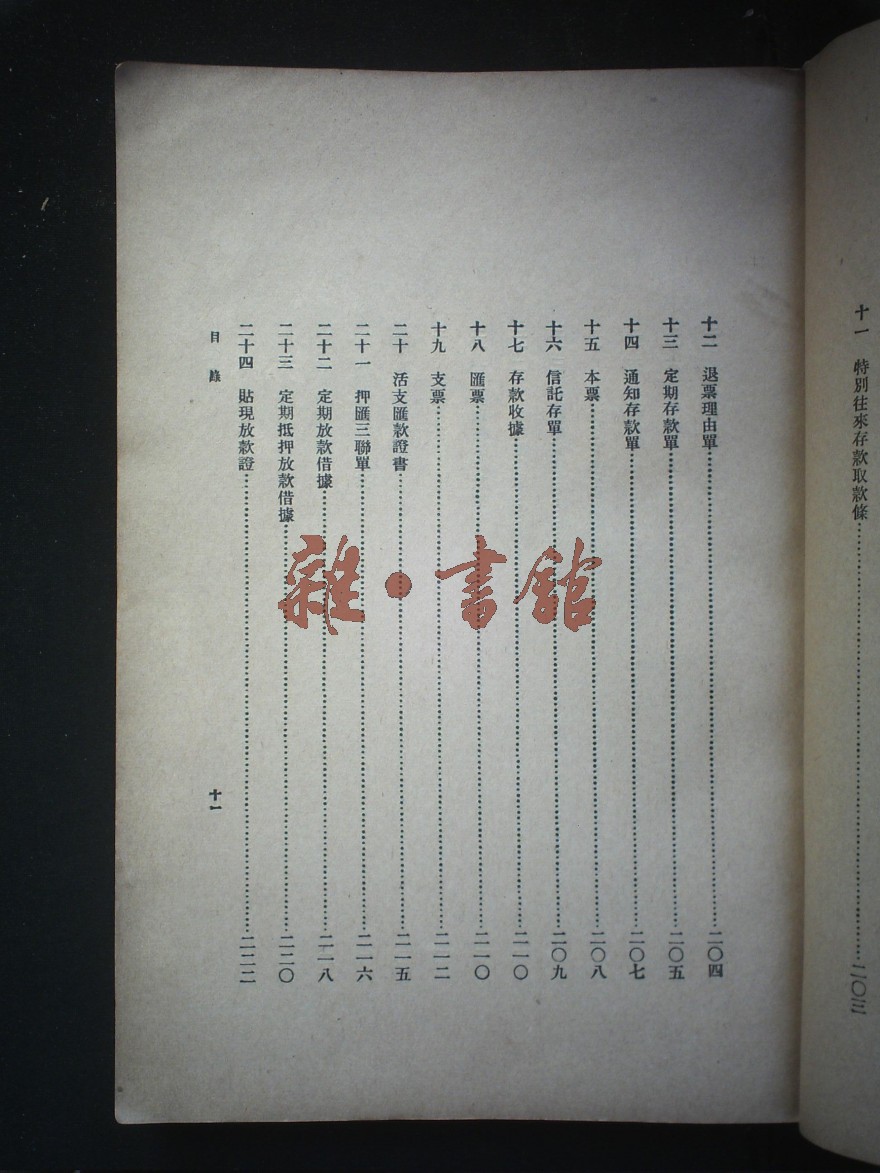 十一　特別往來存款取款條……二〇三
十二　退票理由單……二〇四
十三　定期存款單……二〇五
十四　通知存款單……二〇七
十五　本票……二〇八
十六　信託存單……二〇九
十七　存款收據……二一〇
十八　匯票……二一〇
十九　支票……二一二
二十　活支匯款證書……二一五
二十一　押匯三聯單……二一六
二十二　定期放款借據……二一八
二十三　定期抵押放款借據……二二〇
二十四　貼現放款證……二二二
目錄
十一
雜·書館